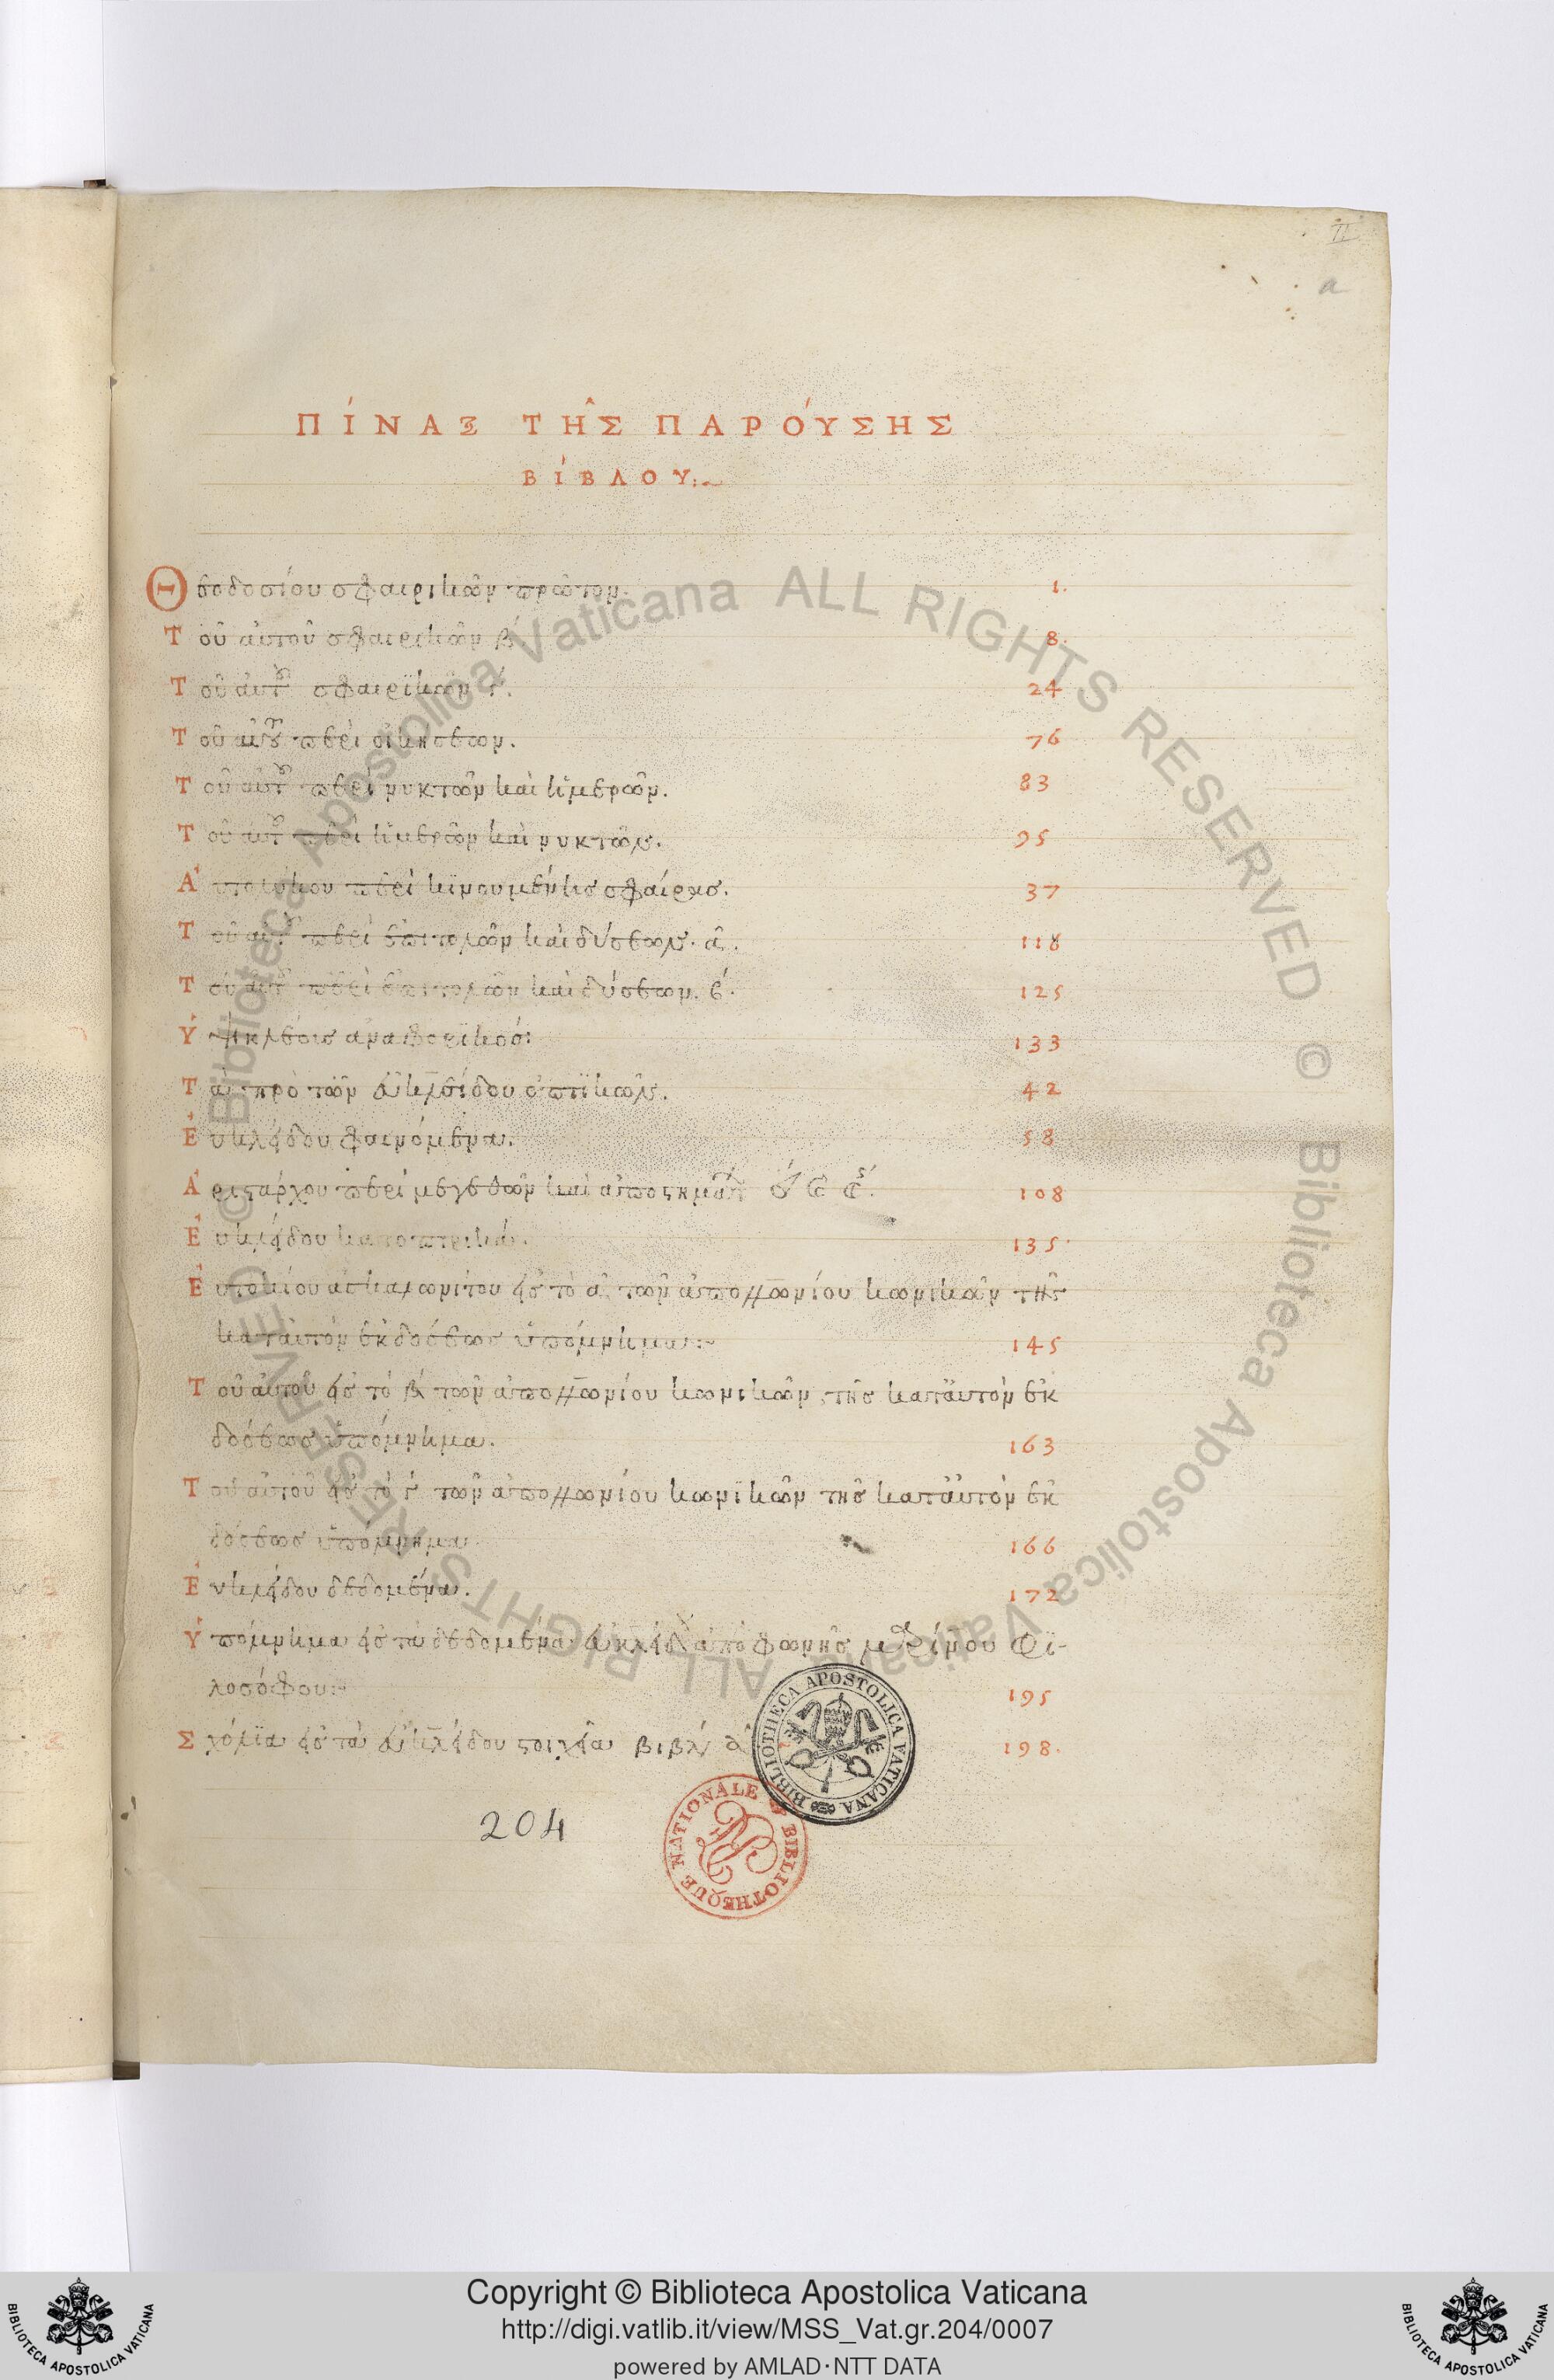 II
a
ΠΊΝΑΞ ΤΗ͂Σ ΠΑΡΌΥΣΗΣ
ΒΊΒΛΟΥ:~
Θεοδοσίου σφαιρικῶν πρῶτον. 1.
Τοῦ αὐτοῦ σφαιρικῶν β´ 8.
Τοῦ αὐτοῦ σφαιρϊκῶν γ´. 24
Τοῦ αὐτοῦ περὶ οἰκήσεων. 76
Τοῦ αὐτοῦ περὶ νυκτῶν καὶ ἡμερῶν. 83
Τοῦ αὐτοῦ περὶ ἡμερῶν καὶ νυκτῶν. 95
Ἀυτολύκου περὶ κϊνουμένης σφαίρας. 37
Τοῦ αὐτοῦ περὶ ἐπιτολῶν καὶ δύσεων. α. 118
Τοῦ αὐτοῦ περὶ ἐπιτολῶν καὶ δύσεων. β´. 125
Ὑψικλέους ἀναφορϊκός: 133
Τὰ πρὸ τῶν εὐκλείδου ὀπτϊκῶν. 42
Ἐυκλείδου φαινόμενα. 58
Ἀριστάρχου περὶ μεγεθῶν καὶ ἀποστημάτ 108
Ἐυκλείδου κατοπτρικά. 135.
Ἐυτοκίου ἀσκαλωνίτου εἰς τὸ α τῶν ἀπολλωνίου κωνικῶν τῆς
καταὐτὸν ἐκδόσεως ὑπόμνημα:~ 145
Τοῦ αὐτοῦ εἰς τὸ β τῶν ἀπολλωνίου κωνικῶν τῆς κατ'αὐτὸν ἐκ
δόσεως ὑπόμνημα. 163
Τοῦ αὐτοῦ εἰς τὸ γ τῶν ἀπολλωνίου κωνϊκῶν τῆς κατ'αὐτὸν ἐκ
δόσεως ὑπόμνημα 166
Ἐυκλείδου δεδομένα. 172
Ὑπόμνημα εἰς τὰ δεδομένα εὐκλείδου ἀπὸ φωνῆς μαρίνου φϊ-
λοσόφου:~ 195
Σχόλϊα εἰς τὰ εὐκλείδου στοιχεῖα βιβλ 198.
204
BIBLIOTHECA APOSTOLICA VATICANA
BIBLIOTHEQUE NATIONALE
© Biblioteca Apostolica Vaticana ALL RIGHTS RESERVED © Biblioteca Apostolica Vaticana ALL RIGHTS RESERVED
Copyright © Biblioteca Apostolica Vaticana
http://digi.vatlib.it/view/MSS_Vat.gr.204/0007
powered by AMLAD·NTT DATA
BIBLIOTECA APOSTOLICA VATICANA
BIBLIOTECA APOSTOLICA VATICANA